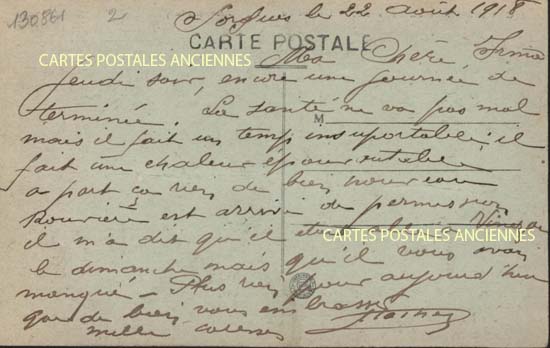 130861 2
Sorgues le 22 août 1918
CARTE POSTALE
CARTES POSTALES ANCIENNES
Ma Chère Irma
Jeudi soir, encore une journée de
terminée. La santé ne va pas mal
M
mais il fait un temps insuportable, il
fait une chaleur épouventable
a part ça rien de bien nouveau
est arrivé de permission
il m'a dit qu'il
CARTES POSTALES ANCIENNES
le dimanche mais qu'il vous avai
manqué - Plus rien pour aujourd'hui
que de bien vous embrasser
mille caresses